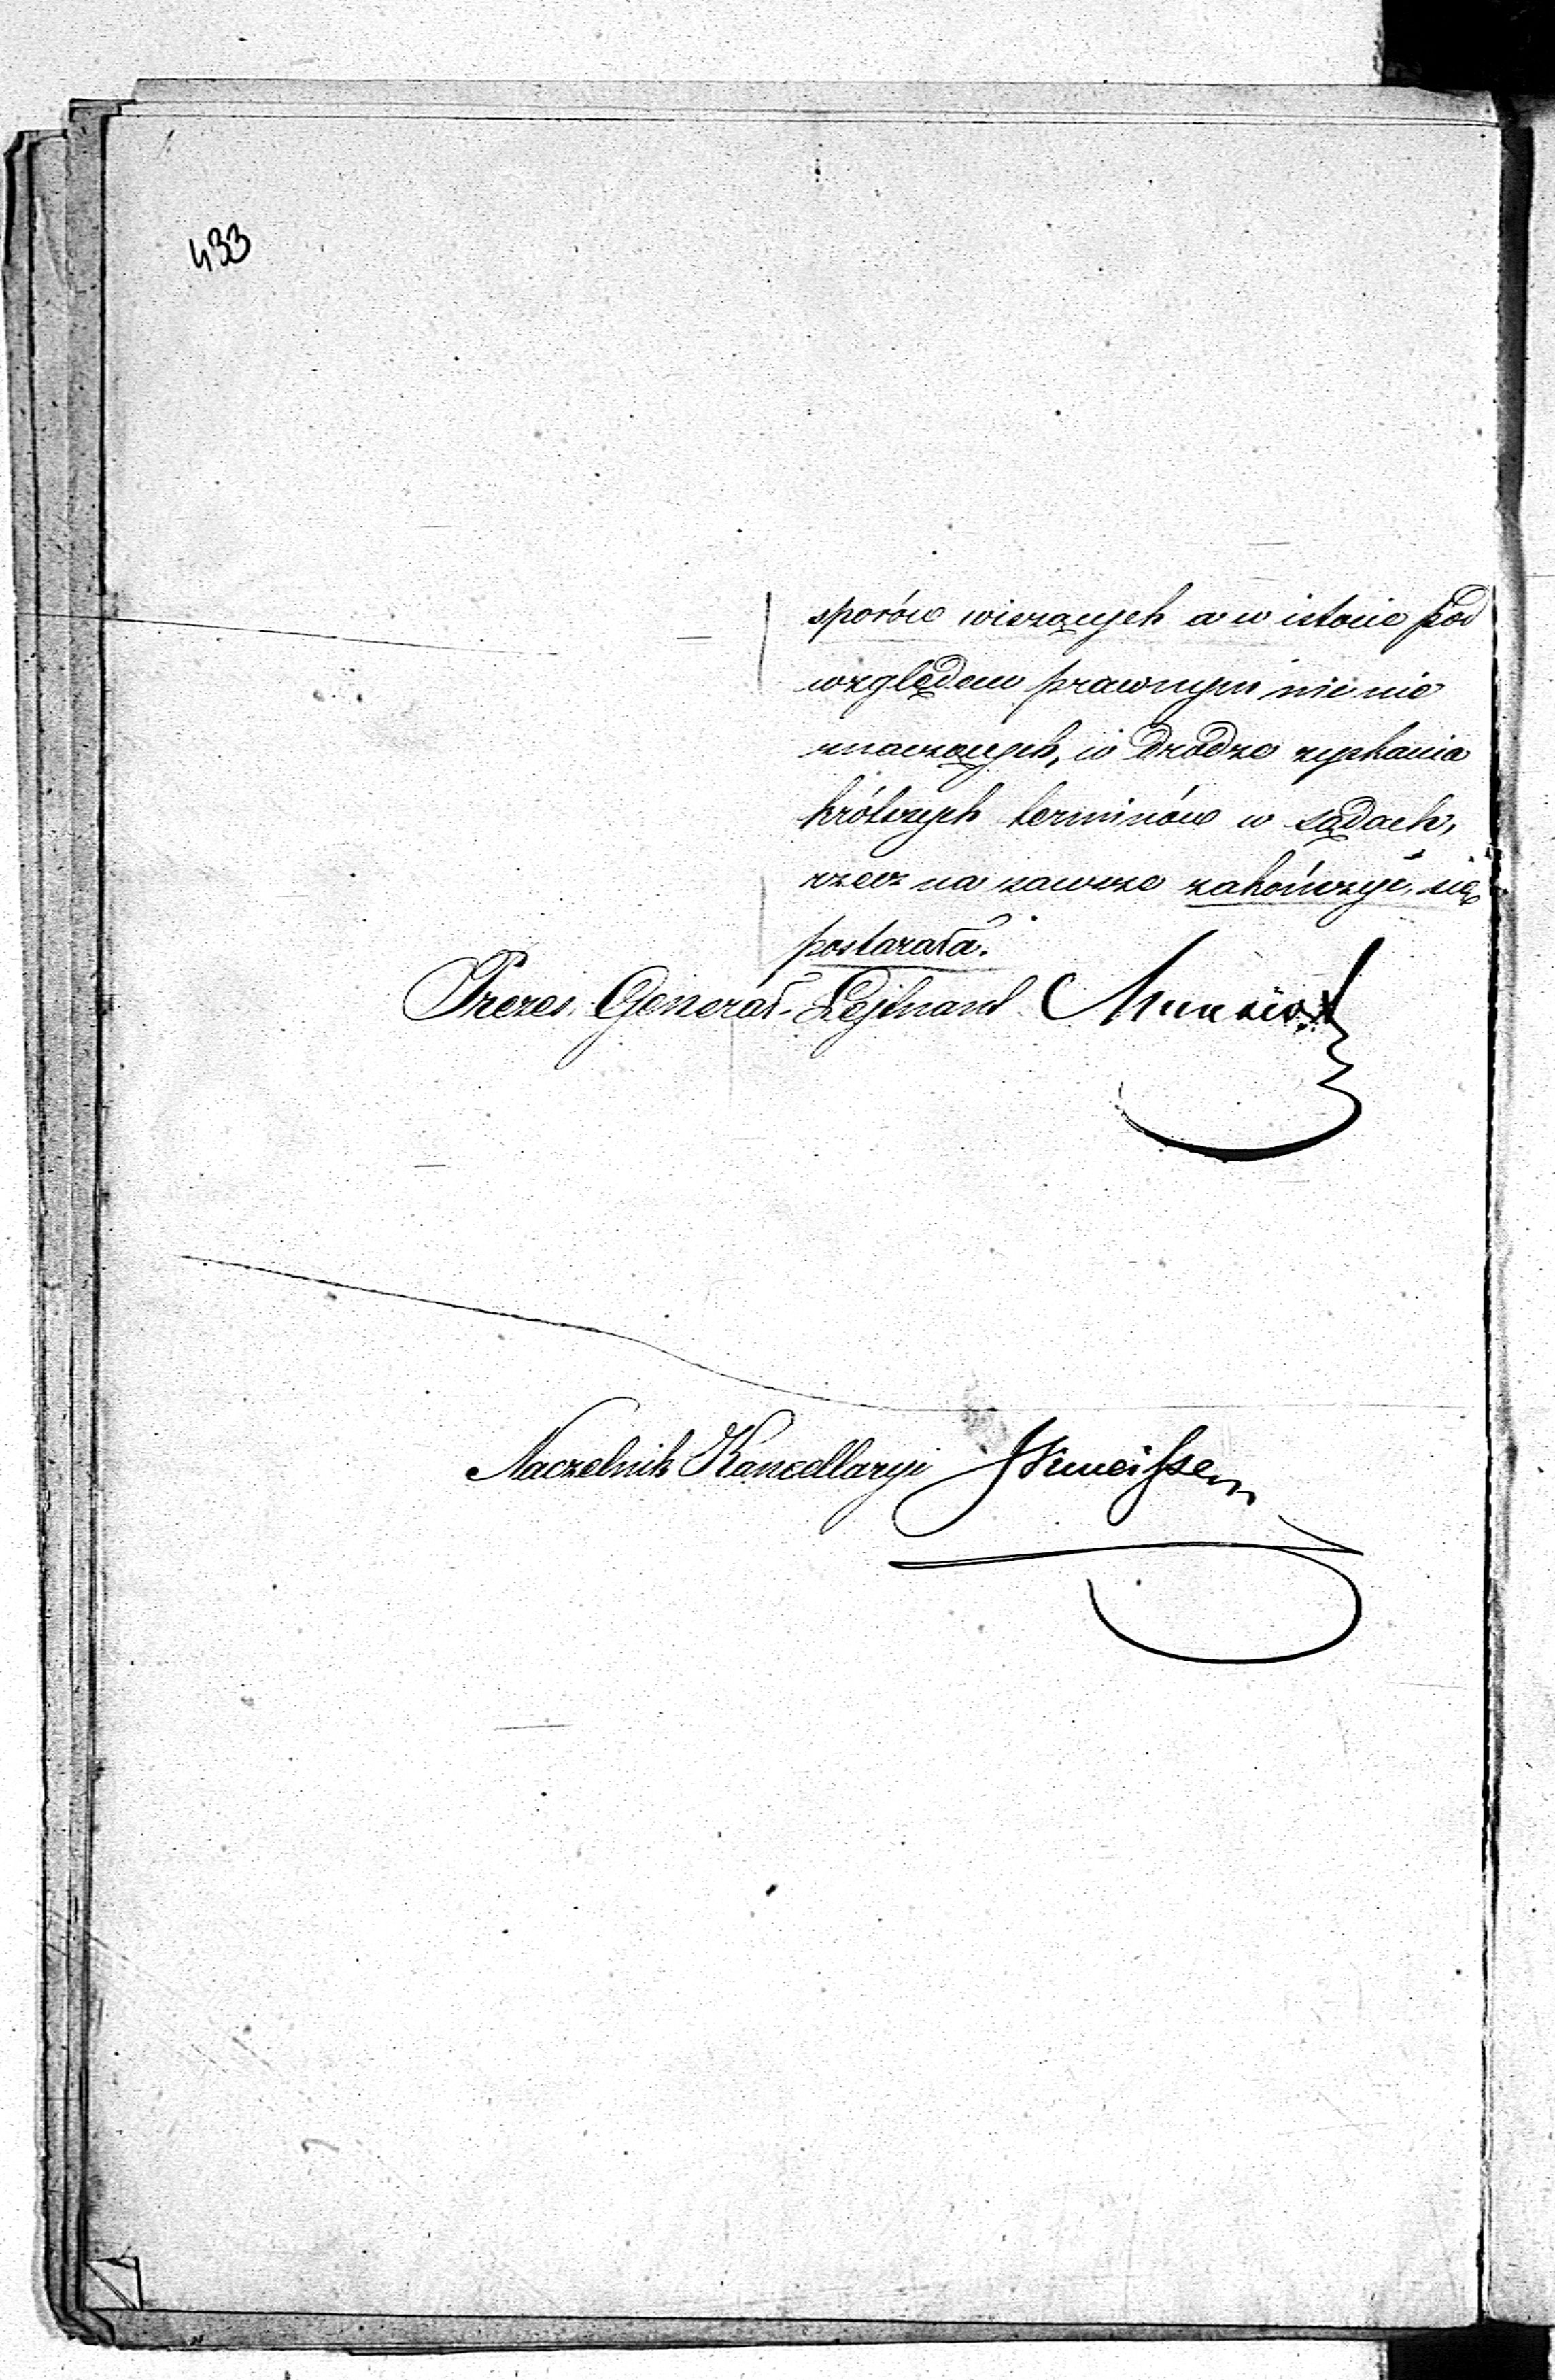 433
sporów wiszących a w istocie pod
względem prawnym nic nie
znaczących, w drodze zyskania
krótszych terminów w sądach,
rzecz na zawsze zakończyć się
postarała.
Prezes, Generał-Lejtnant
Naczelnik Kancellaryi